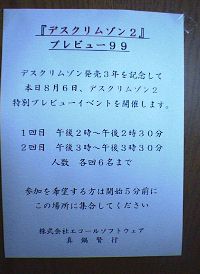 『デスクリムゾン２』
プレビュー９９
デスクリムゾン発売３年を記念して
本日８月６日、デスクリムゾン２
特別プレビューイベントを開催します。
１回目　午後２時～午後２時３０分
２回目　午後３時～午後３時３０分
人数　各回６名まで
参加を希望する方は開始５分前に
この場所に集合してください
株式会社エコールソフトウェア
真鍋賢行